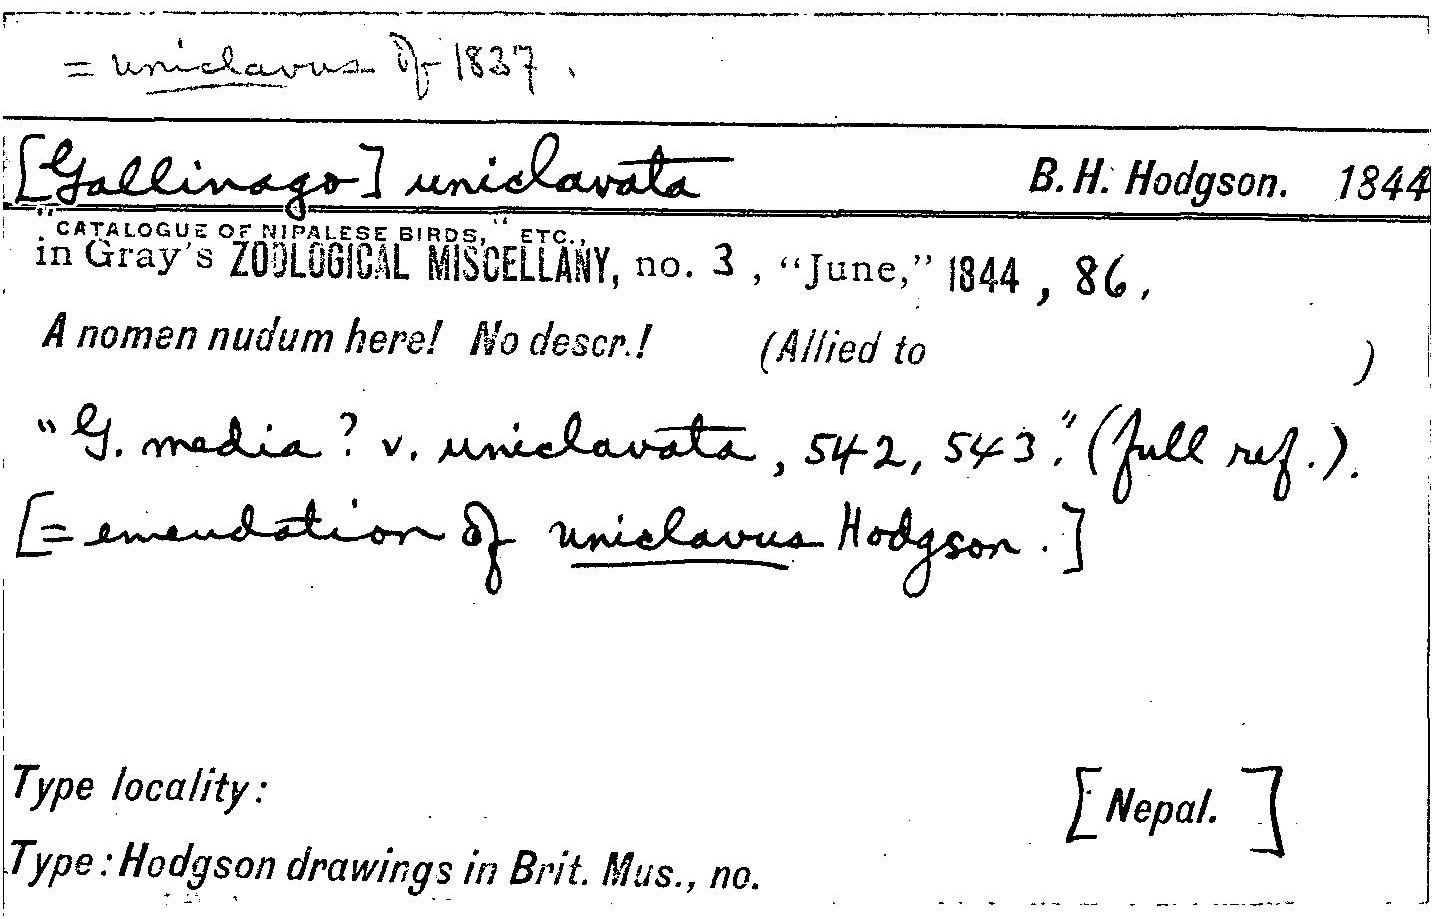 = uniclavus of 1837.
[Gallinago] uniclavata B. H. Hodgson. 1844
"CATALOGUE OF NIPALESE BIRDS," ETC.,
in Gray's ZOOLOGICAL MISCELLANY, no. 3, "June," 1844, 86.
A nomen nudum here! No descr.! (Allied to )
"G. media? v. uniclavata, 542, 543." (full ref.).
[= emendation of uniclavus Hodgson.]
Type locality: [Nepal.]
Type: Hodgson drawings in Brit. Mus., no.